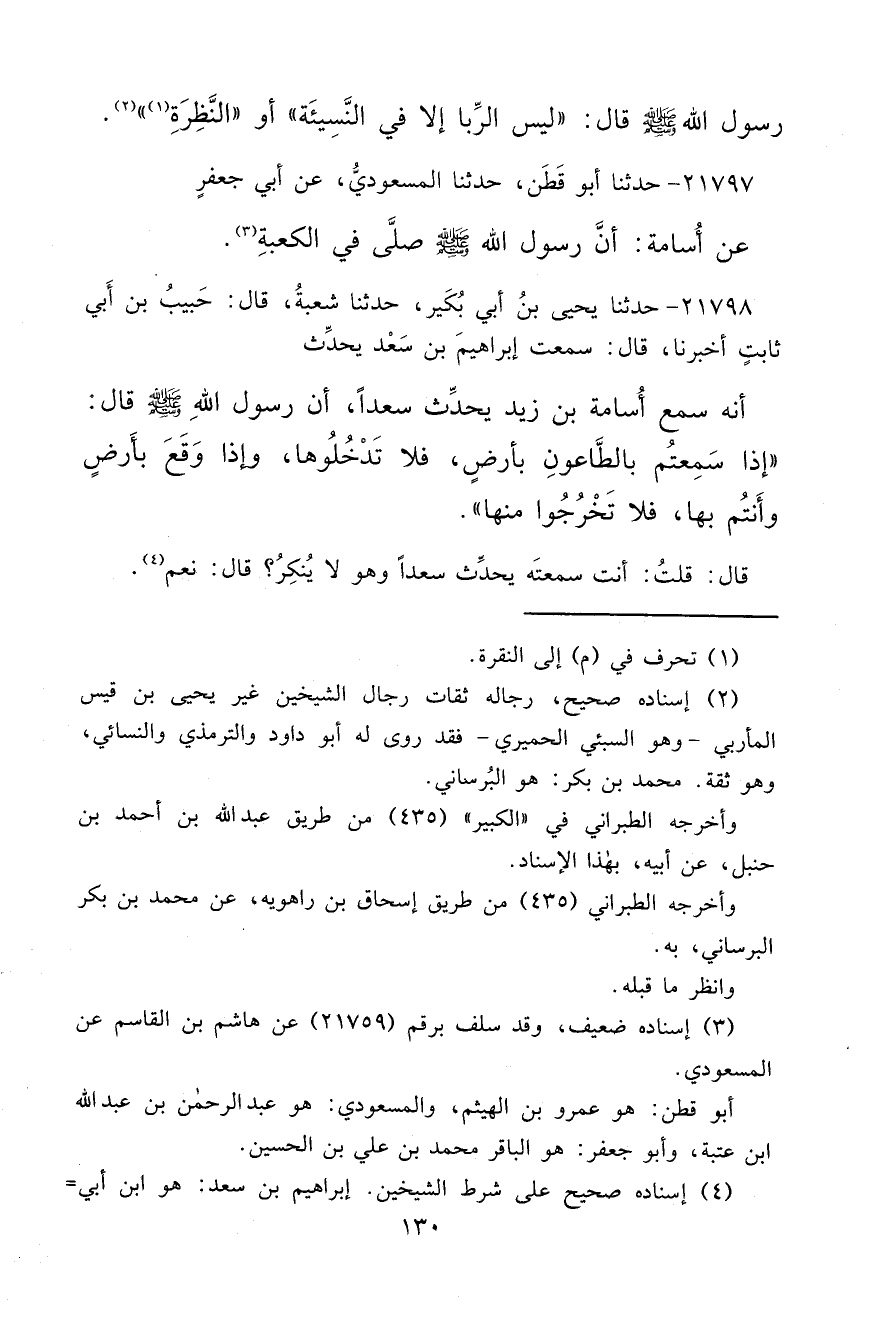 رسول الله ﷺ قال: «ليس الرِّبا إلا في النَّسِيئَة» أو «النَّظِرَةِ(١)»(٢).
٢١٧٩٧- حدثنا أبو قَطَن، حدثنا المسعوديُّ، عن أبي جعفرٍ
عن أُسامة: أنَّ رسول الله ﷺ صلَّى في الكعبةِ(٣).
٢١٧٩٨- حدثنا يحيى بنُ أبي بُكَير، حدثنا شعبةُ، قال: حَبيبُ بن أَبي
ثابتٍ أخبرنا، قال: سمعت إبراهيمَ بن سَعْد يحدِّث
أنه سمع أُسامة بن زيد يحدِّث سعداً، أن رسول اللهِ ﷺ قال:
«إذا سَمِعتُم بالطَّاعونِ بأرضٍ، فلا تَدْخُلُوها، وإذا وَقَعَ بأَرضٍ
وأَنتُم بها، فلا تَخْرُجُوا منها».
قال: قلتُ: أنت سمعتَه يحدِّث سعداً وهو لا يُنكِرُ؟ قال: نعم(٤).
(١) تحرف في (م) إلى النقرة.
(٢) إسناده صحيح، رجاله ثقات رجال الشيخين غير يحيى بن قيس
المأربي -وهو السبئي الحميري- فقد روى له أبو داود والترمذي والنسائي،
وهو ثقة. محمد بن بكر: هو البُرساني.
وأخرجه الطبراني في «الكبير» (٤٣٥) من طريق عبدالله بن أحمد بن
حنبل، عن أبيه، بهٰذا الإسناد.
وأخرجه الطبراني (٤٣٥) من طريق إسحاق بن راهويه، عن محمد بن بكر
البرساني، به.
وانظر ما قبله.
(٣) إسناده ضعيف، وقد سلف برقم (٢١٧٥٩) عن هاشم بن القاسم عن
المسعودي.
أبو قطن: هو عمرو بن الهيثم، والمسعودي: هو عبدالرحمٰن بن عبدالله
ابن عتبة، وأبو جعفر: هو الباقر محمد بن علي بن الحسين.
(٤) إسناده صحيح على شرط الشيخين. إبراهيم بن سعد: هو ابن أبي=
١٣٠